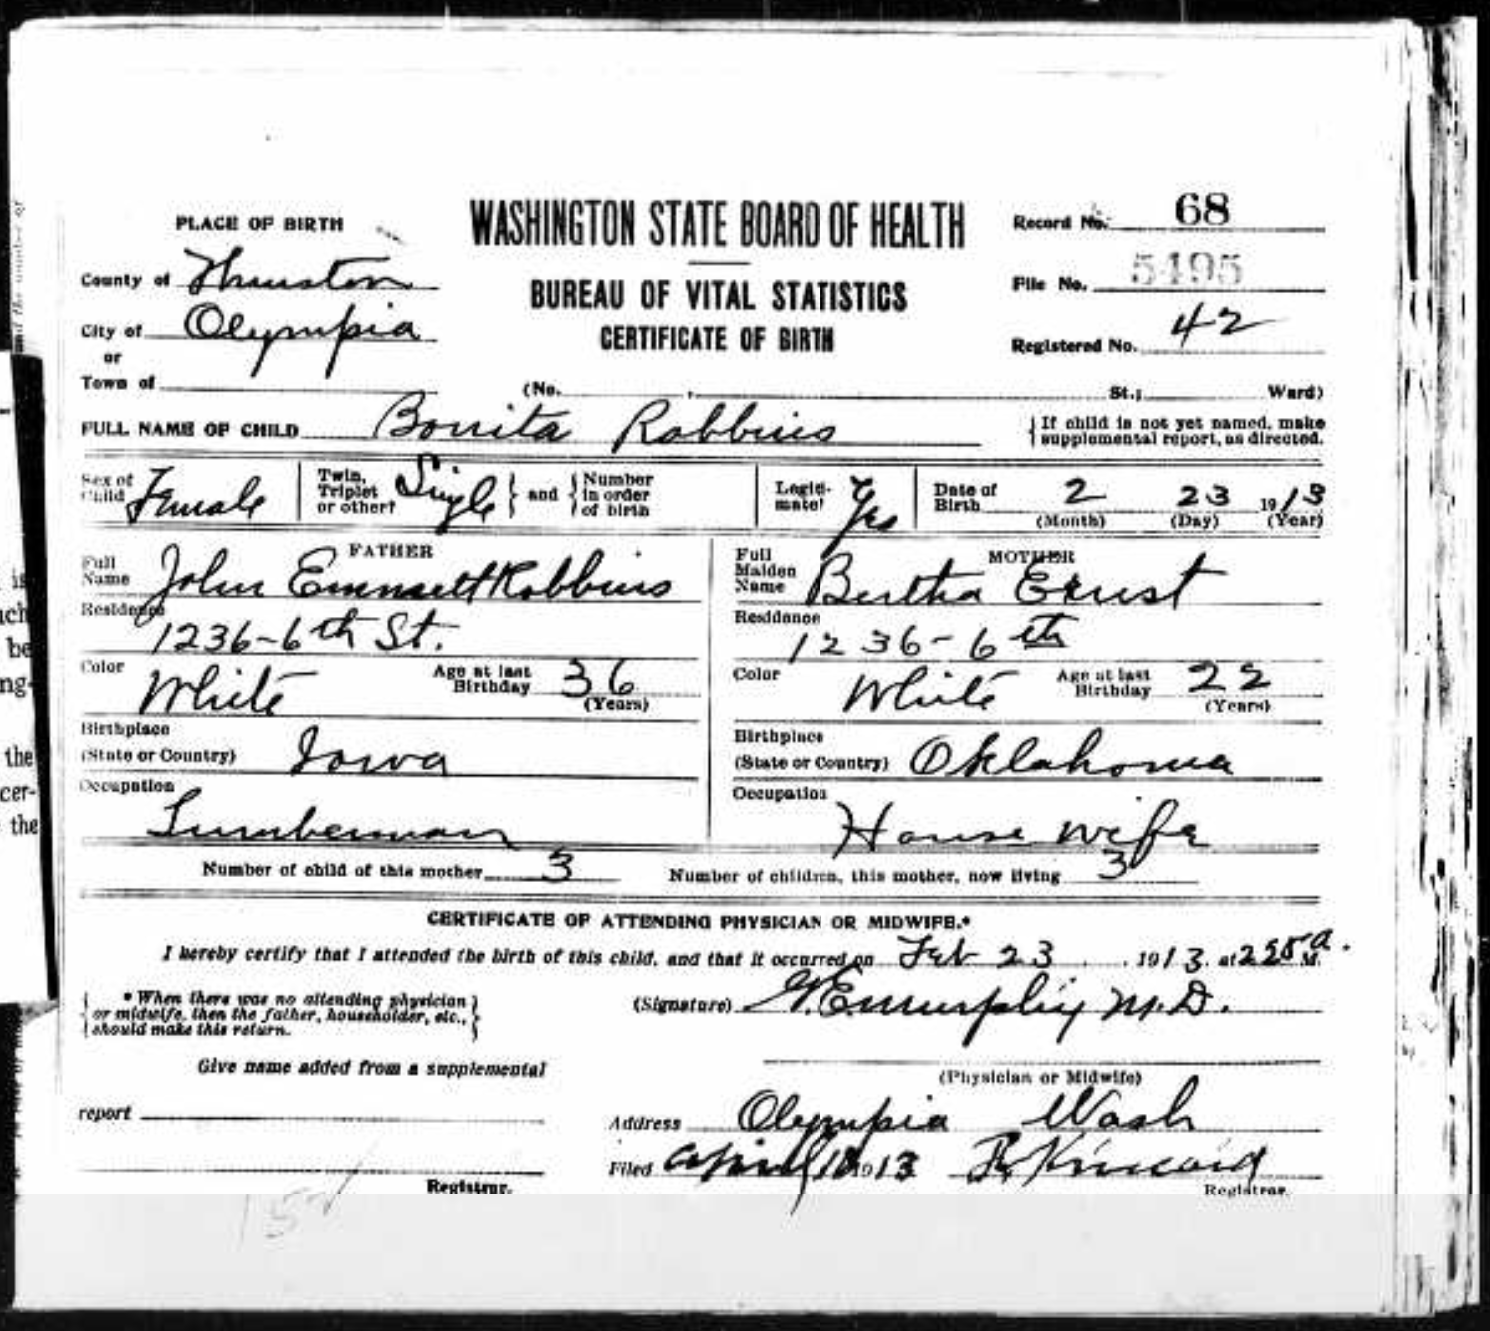 WASHINGTON STATE BOARD OF HEALTH
BUREAU OF VITAL STATISTICS
CERTIFICATE OF BIRTH
PLACE OF BIRTH
County of Thurston
City of Olympia
or
Town of
Record No. 68
File No. 5495
Registered No. 42
(No. , St.; Ward)
FULL NAME OF CHILD Bonita Robbins
{If child is not yet named, make
supplemental report, as directed.
Sex of Child Female
Twin, Triplet or other? Single } and { Number in order of birth
Legitimate? Yes
Date of Birth 2 23 1913
(Month) (Day) (Year)
FATHER
Full Name John Emmett Robbins
Residence
1236-6th St.
Color White Age at last Birthday 36
(Years)
Birthplace
(State or Country) Iowa
Occupation
Lumberman
MOTHER
Full Maiden Name Bertha Ernst
Residence
1236-6th
Color White Age at last Birthday 22
(Years)
Birthplace
(State or Country) Oklahoma
Occupation
House wife
Number of child of this mother 3 Number of children, this mother, now living 3
CERTIFICATE OF ATTENDING PHYSICIAN OR MIDWIFE.*
I hereby certify that I attended the birth of this child, and that it occurred on Feb 23, 1913. at 2 a. M.
{ * When there was no attending physician }
or midwife, then the father, householder, etc.,
should make this return.
(Signature) Murphy M.D.
(Physician or Midwife)
Give name added from a supplemental
report
Registrar.
Address Olympia Wash
Filed April 1913 Kincaid
Registrar.
the
cer-
the
be